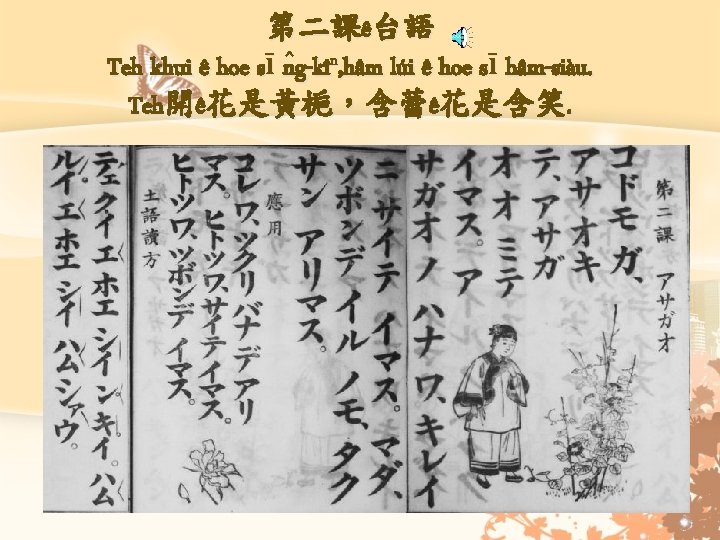 第二課ê台語
Teh khui ê hoe sī n̂g-kîⁿ, hâm lúi ê hoe sī hâm-siàu.
Teh開ê花是黃梔，含蕾ê花是含笑.
第二課 アサガオ
コドモ ガ、
アサオキ
テ、アサガ
オ オ ミテ
イマス。ア
サガオ ノ ハナ ワ、キレイ
ニ サイテ イマス。マダ、
ツボンデ イル ノモ、タク
サン アリマス。
應用
コレ ワ、ツクリバナ デ アリ
マス。ヒトツ ワ、サイテ イマス。
ヒトツ ワ、ツボンデ イマス。
土語讀方
テェク イ エ ホエ シイ ン キイ。ハム
ルイ エ ホエ シイ ハム シァウ。